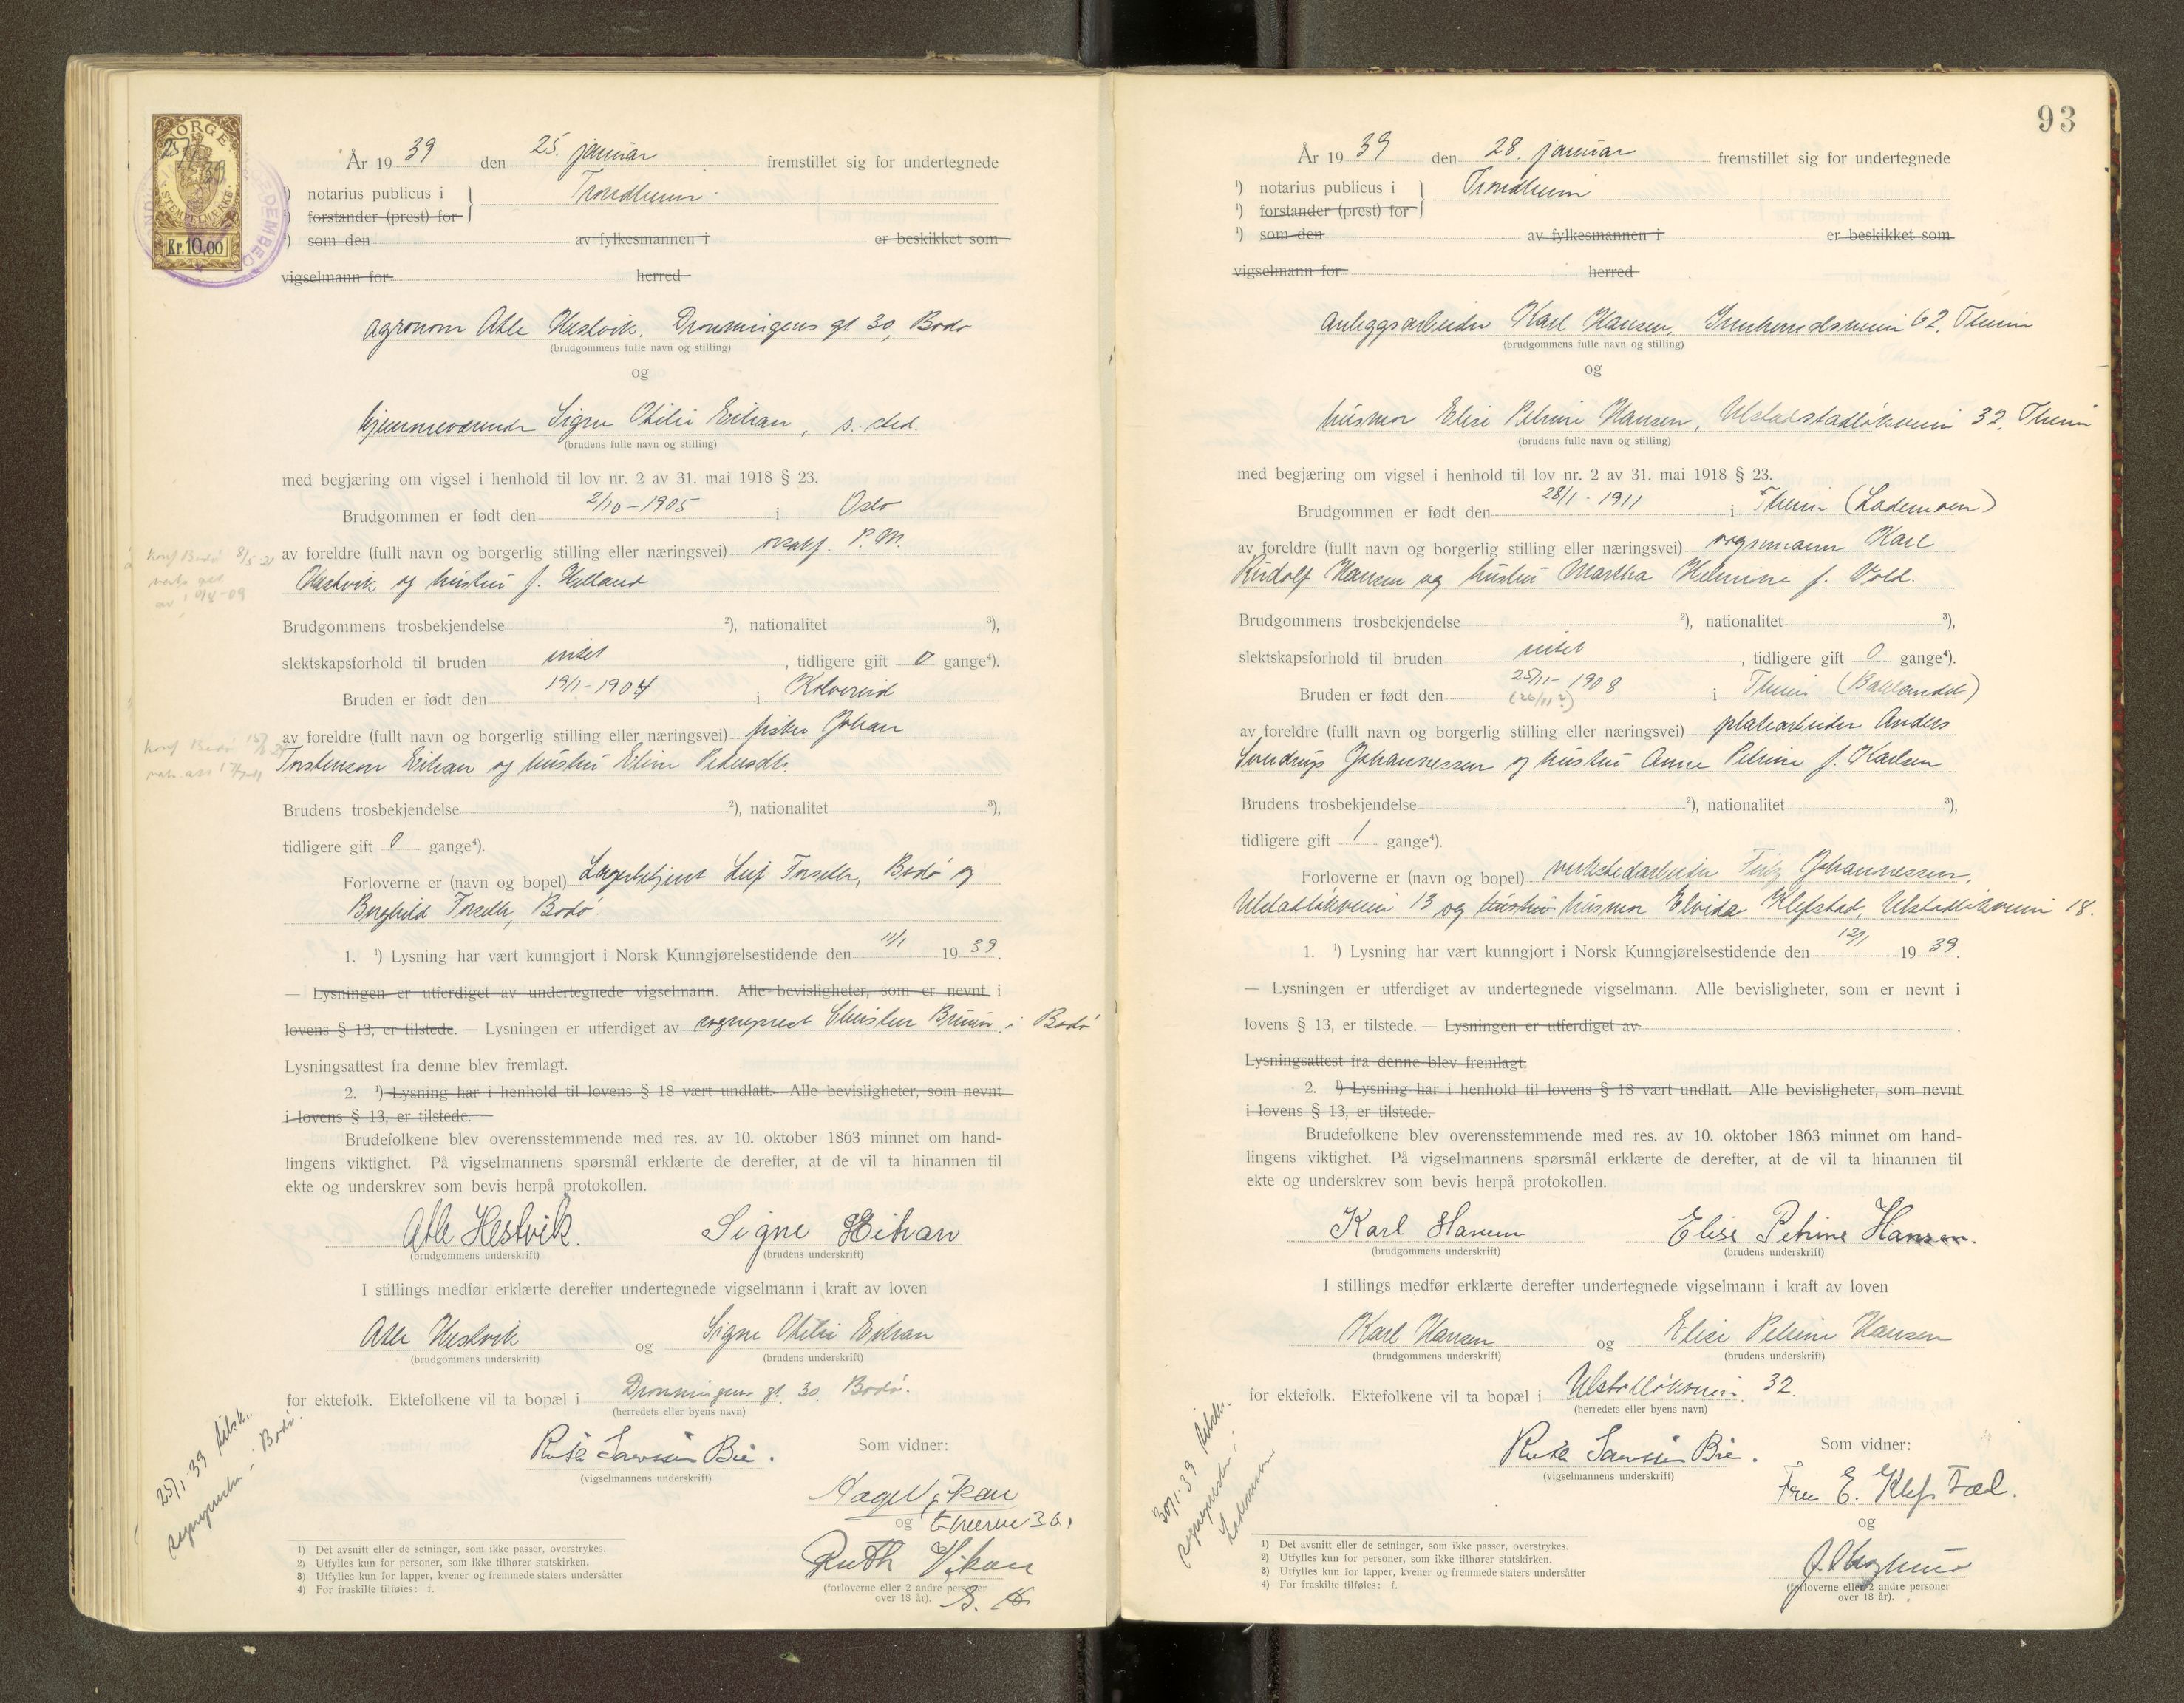 NORGE
25/1 39
STEMPELMERKE
Kr. 10,00
År 19 39 den 25. januar fremstillet sig for undertegnede
¹) notarius publicus i Trondheim
¹) forstander (prest) for
¹) som den av fylkesmannen i er beskikket som
vigselmann for herred
agronom Atle Hestvik, Dronningens gt 30, Bodø
(brudgommens fulle navn og stilling)
og
hjemmeværende Signe Otilie Eihan, s. sted.
(brudens fulle navn og stilling)
med begjæring om vigsel i henhold til lov nr. 2 av 31. mai 1918 § 23.
Brudgommen er født den 2/10-1905 i Oslo
av foreldre (fullt navn og borgerlig stilling eller næringsvei) P. M.
Hestvik og hustru f. Helland
Brudgommens trosbekjendelse ²), nationalitet ³),
slektskapsforhold til bruden intet, tidligere gift 0 gange⁴).
Bruden er født den 19/1-1904 i Kolvereid
av foreldre (fullt navn og borgerlig stilling eller næringsvei) fisker Johan
Torstensen Eihan og hustru Eline Pedersdtr.
Brudens trosbekjendelse ²), nationalitet ³),
tidligere gift 0 gange⁴).
Forloverne er (navn og bopel) Lagerbetjent Leif Forseth, Bodø og
Borghild Forseth, Bodø.
1. ¹) Lysning har vært kunngjort i Norsk Kunngjørelsestidende den 11/1 19 39.
— Lysningen er utferdiget av undertegnede vigselmann. Alle bevisligheter, som er nevnt i
lovens § 13, er tilstede. — Lysningen er utferdiget av sogneprest Christen Bruun i Bodø
Lysningsattest fra denne blev fremlagt.
2. ¹) Lysning har i henhold til lovens § 18 vært undlatt. Alle bevisligheter, som nevnt
i lovens § 13, er tilstede.
Brudefolkene blev overensstemmende med res. av 10. oktober 1863 minnet om hand-
lingens viktighet. På vigselmannens spørsmål erklærte de derefter, at de vil ta hinannen til
ekte og underskrev som bevis herpå protokollen.
Atle Hestvik. Signe Eihan
(brudgommens underskrift) (brudens underskrift)
I stillings medfør erklærte derefter undertegnede vigselmann i kraft av loven
Atle Hestvik og Signe Otilie Eihan
(brudgommens underskrift) (brudens underskrift)
for ektefolk. Ektefolkene vil ta bopæl i Dronningens gt. 30. Bodø.
(herredets eller byens navn)
25/1-39 tilsk. sognepresten i Bodø.
Som vidner:
(vigselmannens underskrift)
og
Ruth Vikan
(forloverne eller 2 andre personer
over 18 år).
1) Det avsnitt eller de setninger, som ikke passer, overstrykes.
2) Utfylles kun for personer, som ikke tilhører statskirken.
3) Utfylles kun for lapper, kvener og fremmede staters undersåtter
4) For fraskilte tilføies: f.
93
År 19 39 den 28. januar fremstillet sig for undertegnede
¹) notarius publicus i Trondheim
¹) forstander (prest) for
¹) som den av fylkesmannen i er beskikket som
vigselmann for herred
anleggsarbeider Karl Hansen, Innherredsveien 62, Theim
(brudgommens fulle navn og stilling)
og
husmor Elise Petrine Hansen, Ulstadløkveien 32, Theim
(brudens fulle navn og stilling)
med begjæring om vigsel i henhold til lov nr. 2 av 31. mai 1918 § 23.
Brudgommen er født den 28/1-1911 i Theim (Lademoen)
av foreldre (fullt navn og borgerlig stilling eller næringsvei) Karl
Rudolf Hansen og hustru Martha Helmine f. Vold.
Brudgommens trosbekjendelse ²), nationalitet ³),
slektskapsforhold til bruden intet, tidligere gift 0 gange⁴).
Bruden er født den 25/11-1908 i Theim (Baklandet)
(26/11?)
av foreldre (fullt navn og borgerlig stilling eller næringsvei) platearbeider Anders
Sverdrup Johannessen og hustru Anne Petrine f. Karlsen
Brudens trosbekjendelse ²), nationalitet ³),
tidligere gift 1 gange⁴).
Forloverne er (navn og bopel) verkstedarbeider Johannessen,
Ulstadløkveien 13 og hustru husmor Elvida Klefstad, Ulstadløkveien 18.
1. ¹) Lysning har vært kunngjort i Norsk Kunngjørelsestidende den 12/1 19 39.
— Lysningen er utferdiget av undertegnede vigselmann. Alle bevisligheter, som er nevnt i
lovens § 13, er tilstede. — Lysningen er utferdiget av
Lysningsattest fra denne blev fremlagt.
2. ¹) Lysning har i henhold til lovens § 18 vært undlatt. Alle bevisligheter, som nevnt
i lovens § 13, er tilstede.
Brudefolkene blev overensstemmende med res. av 10. oktober 1863 minnet om hand-
lingens viktighet. På vigselmannens spørsmål erklærte de derefter, at de vil ta hinannen til
ekte og underskrev som bevis herpå protokollen.
Karl Hansen Elise Petrine Hansen.
(brudgommens underskrift) (brudens underskrift)
I stillings medfør erklærte derefter undertegnede vigselmann i kraft av loven
Karl Hansen og Elise Petrine Hansen
(brudgommens underskrift) (brudens underskrift)
for ektefolk. Ektefolkene vil ta bopæl i Ulstadløkveien 32.
(herredets eller byens navn)
30/1-39 tilsk. sognepresten i Lademoen
Som vidner:
(vigselmannens underskrift)
Fru E. Klefstad.
og
(forloverne eller 2 andre personer
over 18 år).
1) Det avsnitt eller de setninger, som ikke passer, overstrykes.
2) Utfylles kun for personer, som ikke tilhører statskirken.
3) Utfylles kun for lapper, kvener og fremmede staters undersåtter
4) For fraskilte tilføies: f.